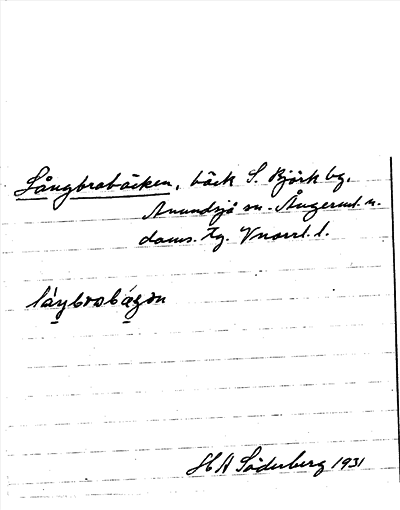 Långbrobäcken, bäck S. Björk by.
Anundsjö sn. Ångerml. n.
doms. Fg. Vnorrl. l.
HA Söderberg 1931